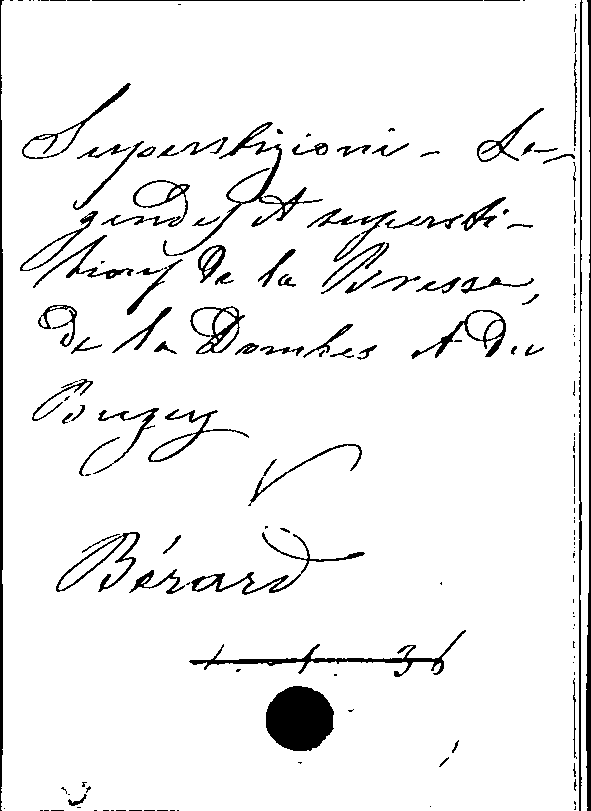 Superstizioni - Le-
gendes et supersti-
tions de la Bresse,
de la Dombes et du
Bugey
V
Bérard
1. 1. 36